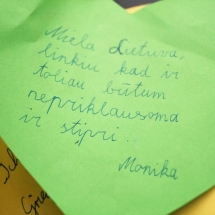 Miela Lietuva,
linkiu kad ir
toliau būtum
nepriklausoma
ir stipri...
Monika